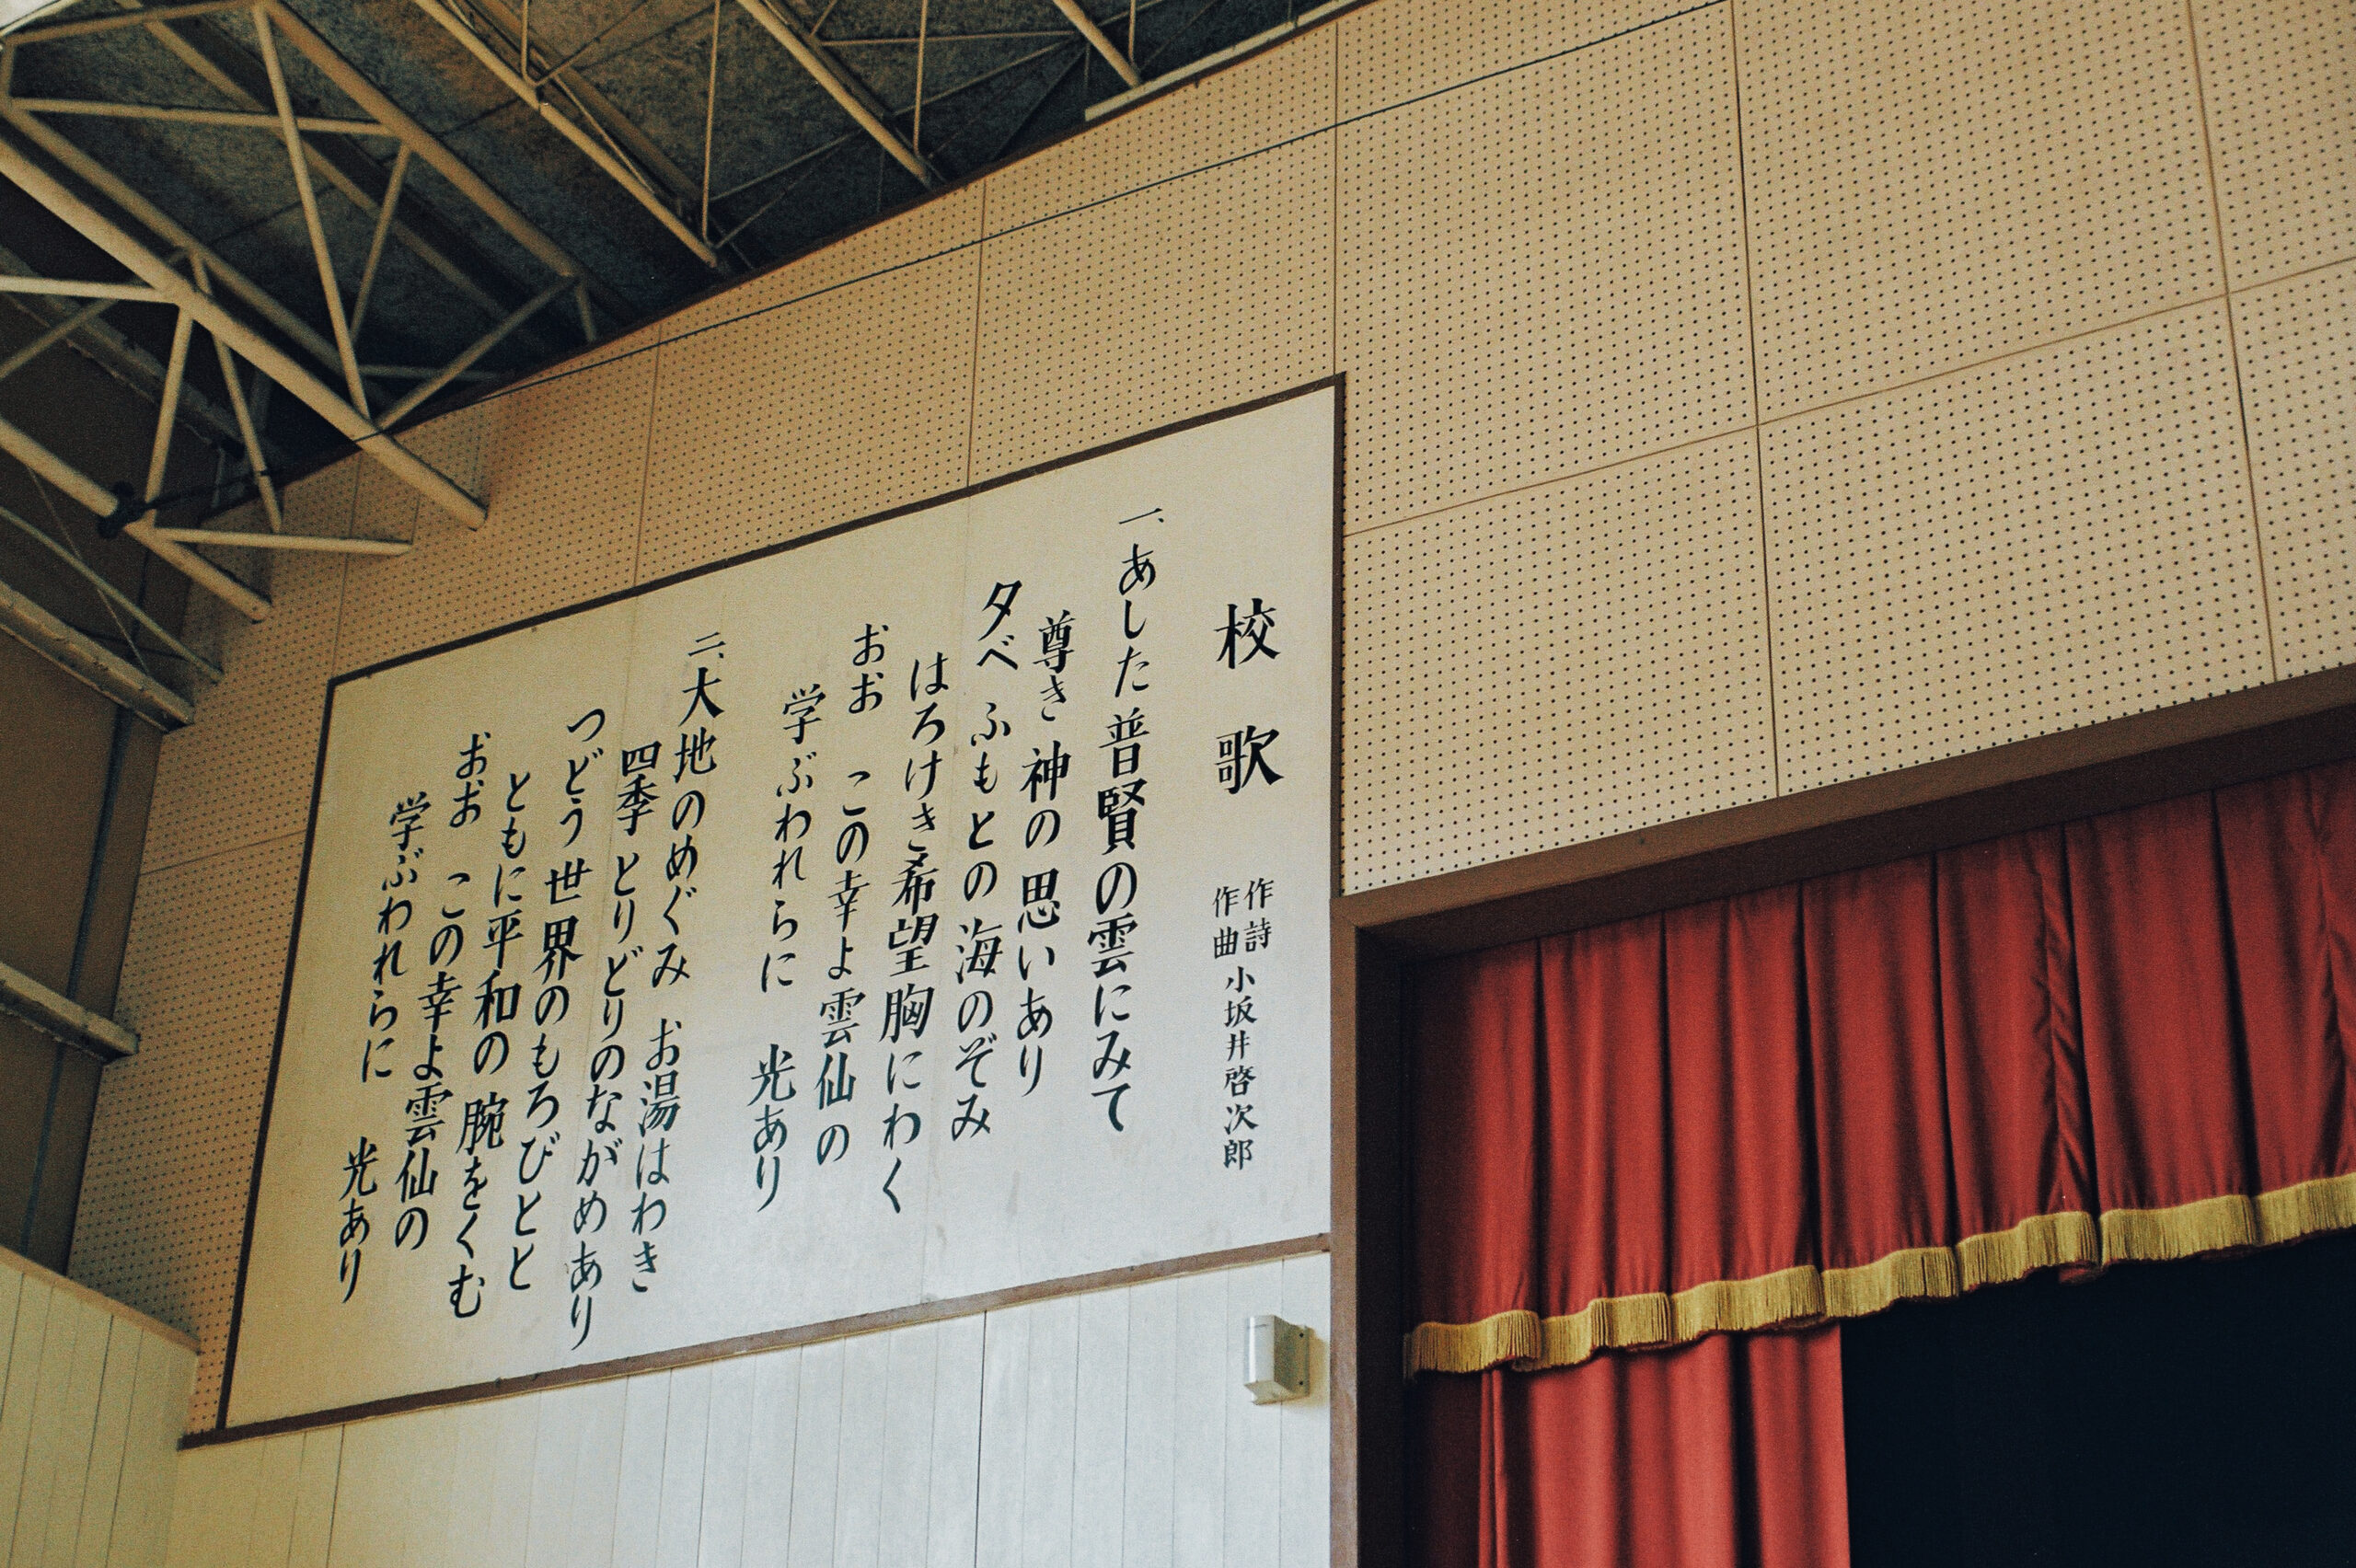 校歌
作詩
作曲
小坂井啓次郎
一、あした普賢の雲にみて
尊き神の思いあり
夕べふもとの海のぞみ
はろけき希望胸にわく
おお この幸よ雲仙の
学ぶわれらに 光あり
二、大地のめぐみ お湯はわき
四季とりどりのながめあり
つどう世界のもろびとと
ともに平和の腕をくむ
おお この幸よ雲仙の
学ぶわれらに 光あり